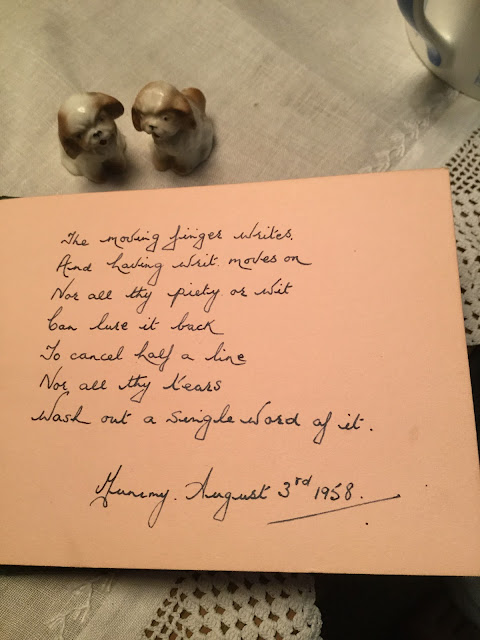 The moving finger writes.
And having writ. moves on
Nor all thy piety or wit
Can lure it back
To cancel half a line
Nor all thy tears
Wash out a single word of it.
Mummy. August 3rd 1958.